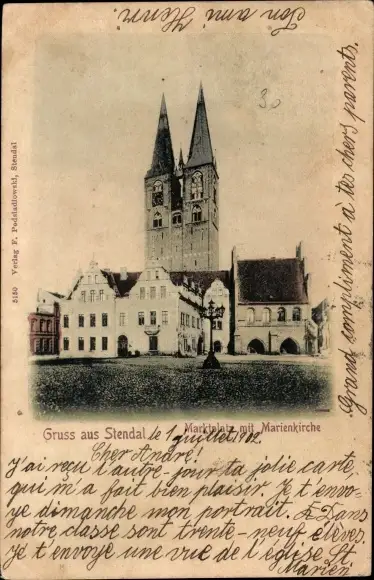 Ton ami Henri.
30
5150 Verlag F. Podstadtowski, Stendal
Grand compliment à tes chers parents.
Gruss aus Stendal
Marktplatz mit Marienkirche
le 1 juillet 1902.
Cher André!
J'ai reçu l'autre-jour ta jolie carte
qui m'a fait bien plaisir. Je t'envo-
ye dimanche mon portrait. Dans
notre classe sont trente-neuf élèves.
Je t'envoye une vue de l'église St.
Marien.